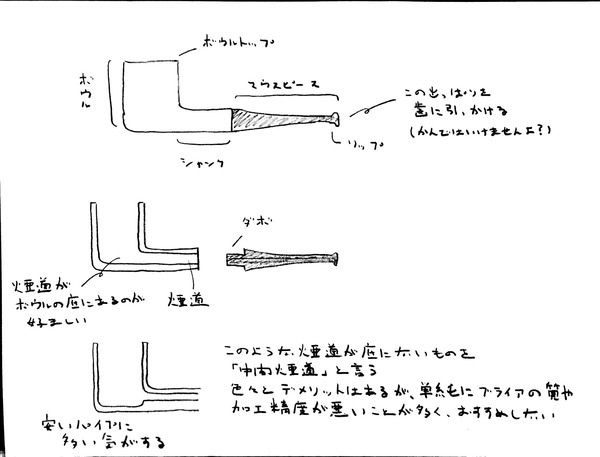 ボウルトップ
ボウル
マウスピース
この出っぱりを
歯に引っかける
(かんではいけませんよ?)
リップ
シャンク
ダボ
煙道が
ボウルの底にあるのが
好ましい
煙道
このような、煙道が底にないものを
「中高煙道」と言う
色々とデメリットはあるが、単純にブライアの質や
加工精度が悪いことが多く、おすすめしない
安いパイプに
多い気がする